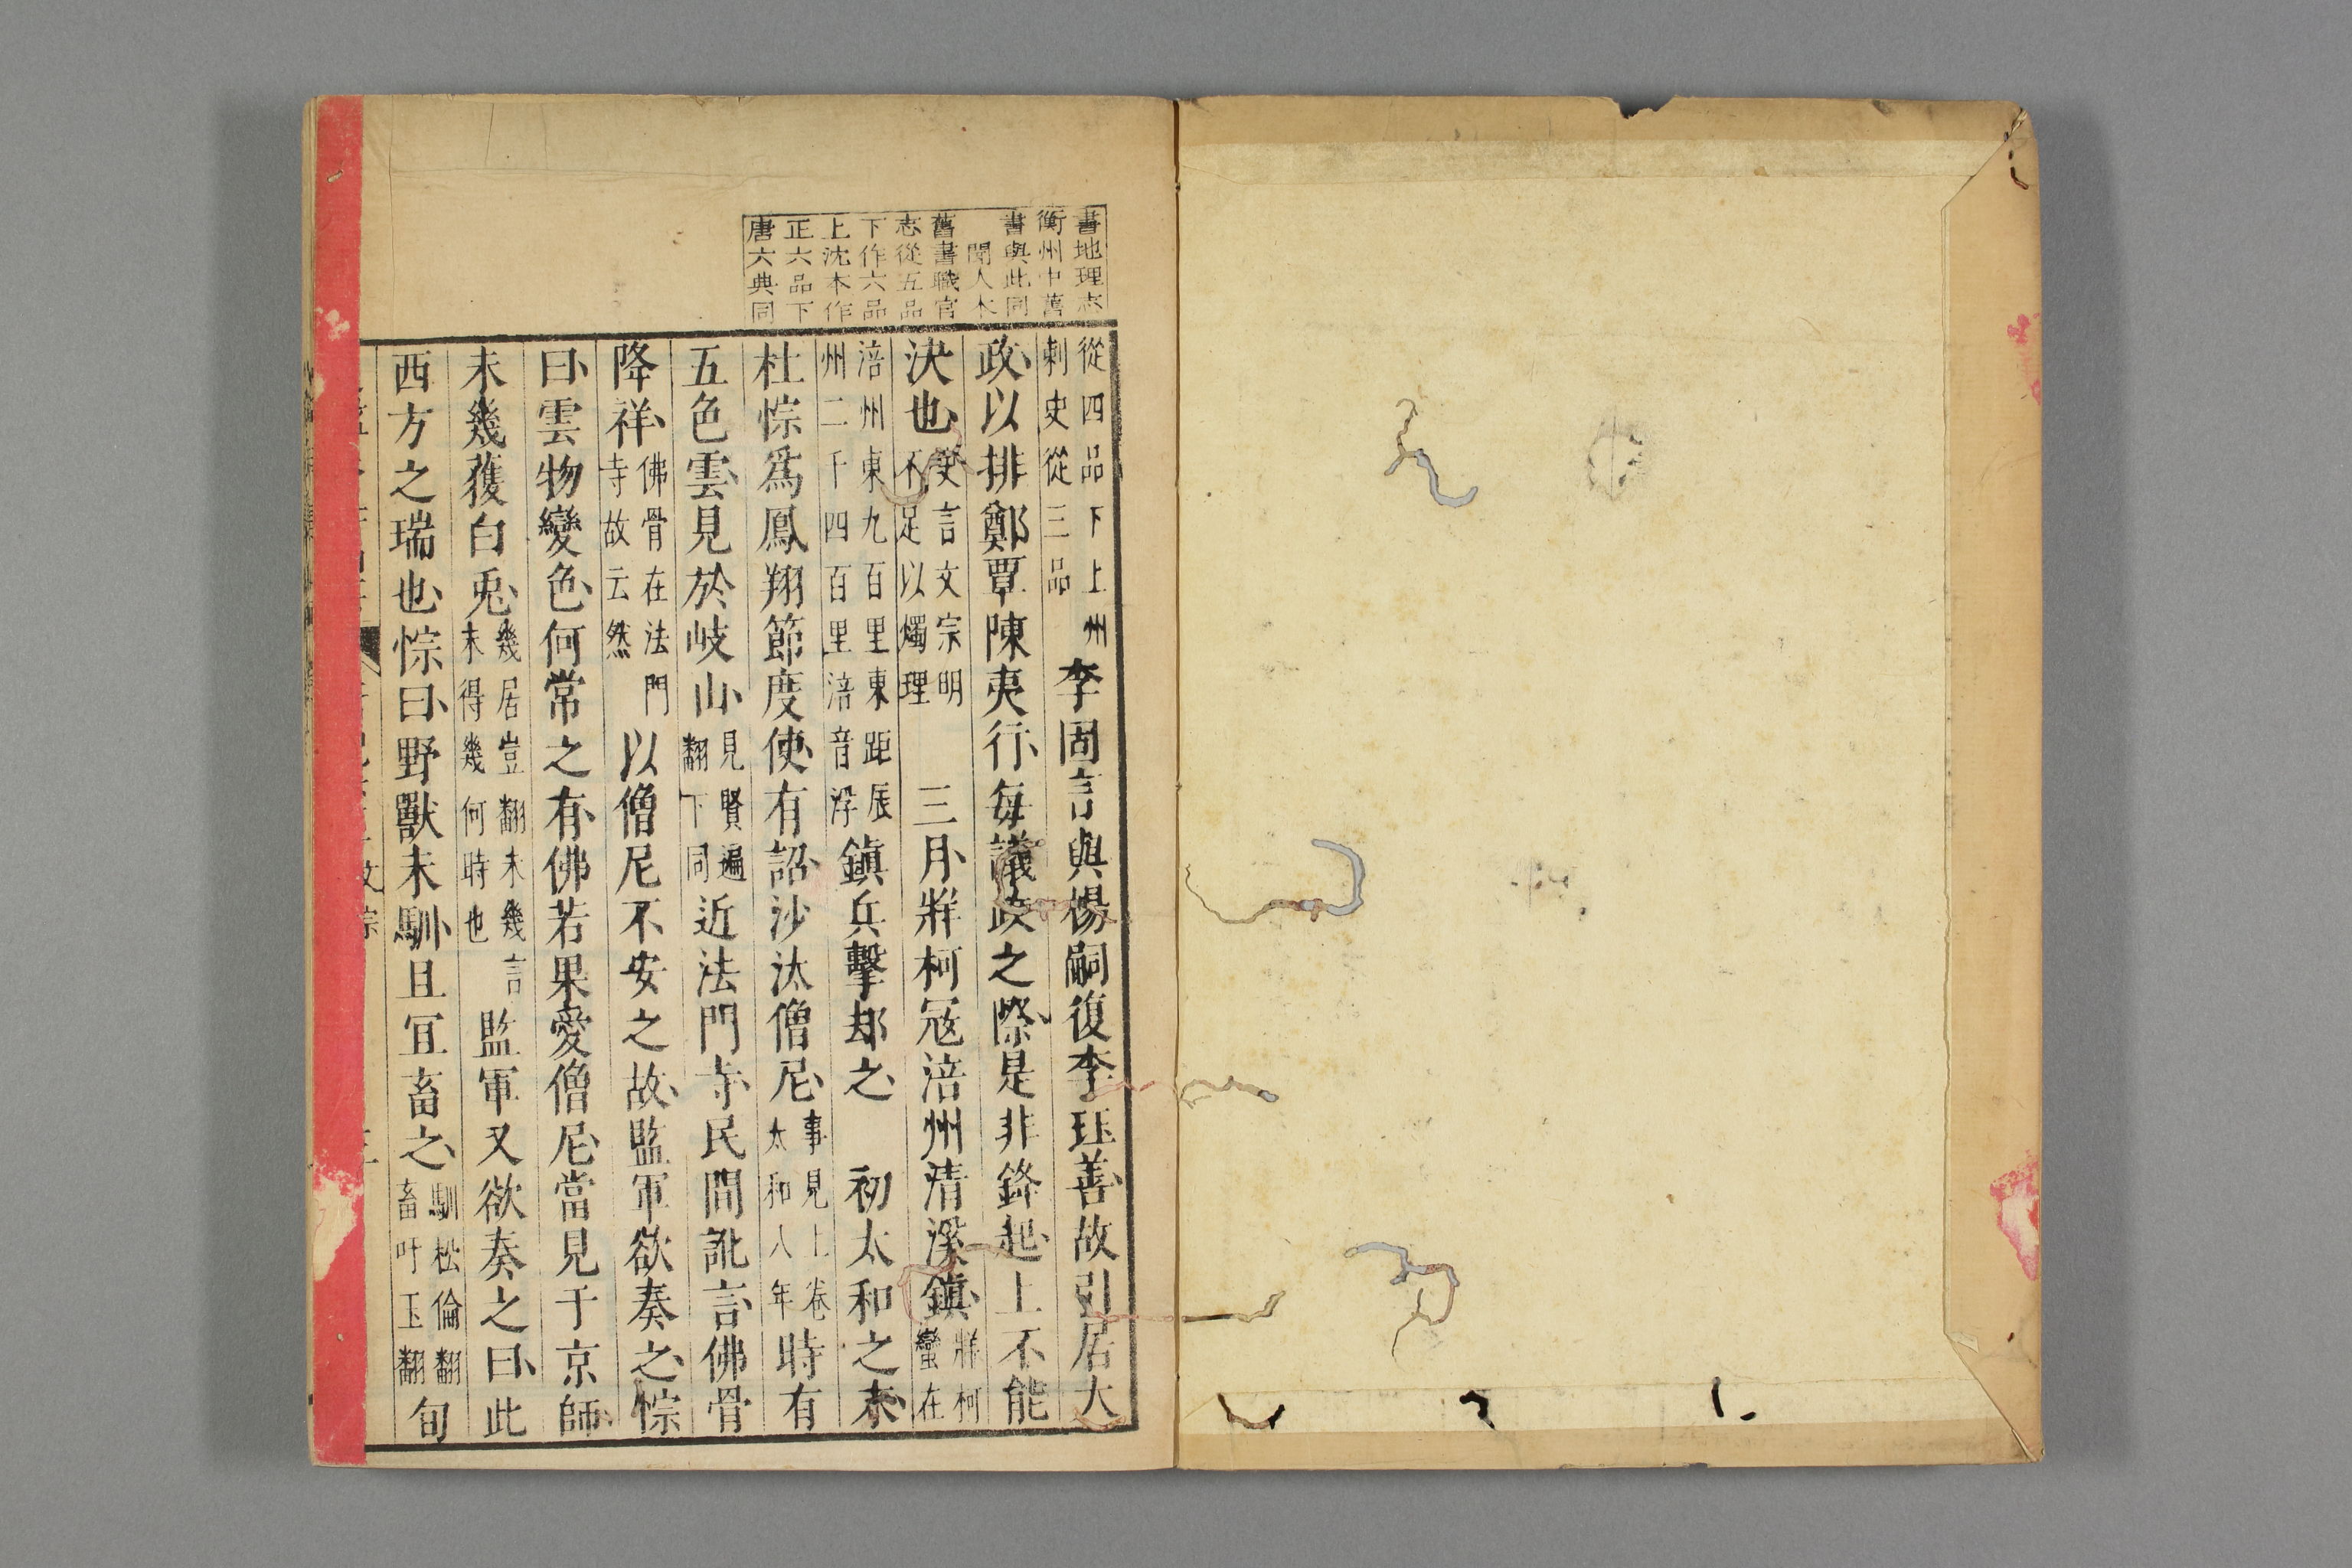 書地理志
衡州中舊
書與此同
聞人本
舊書職官
志從五品
下作六品
上沈本作
正六品下
唐六典同
從四品下上州
刺史從三品
李固言與楊嗣復李珏善、故引居大
政、以排鄭覃陳夷行、每議政之際、是非鋒起、上不能
決也、
史言文宗明
不足以燭理
三月、牂柯寇涪州清溪鎮、
牂柯
蠻在
涪州東九百里東距辰
州二千四百里涪音浮
鎮兵擊却之、 初太和之末、
杜悰爲鳳翔節度使、有詔、沙汰僧尼、
事見上卷
太和八年
時有
五色雲、見於岐山、
見賢遍
翻下同
近法門寺、民間訛言、佛骨
降祥、
佛骨在法門
寺故云然
以僧尼不安之故、監軍欲奏之、悰
曰、雲物變色、何常之有、佛若果愛僧尼、當見于京師、
未幾獲白兔、
幾居豈翻未幾言
未得幾何時也
監軍又欲奏之、曰、此
西方之瑞也、悰曰、野獸未馴、且宜畜之、
馴松倫翻
畜吁玉翻
旬
文宗